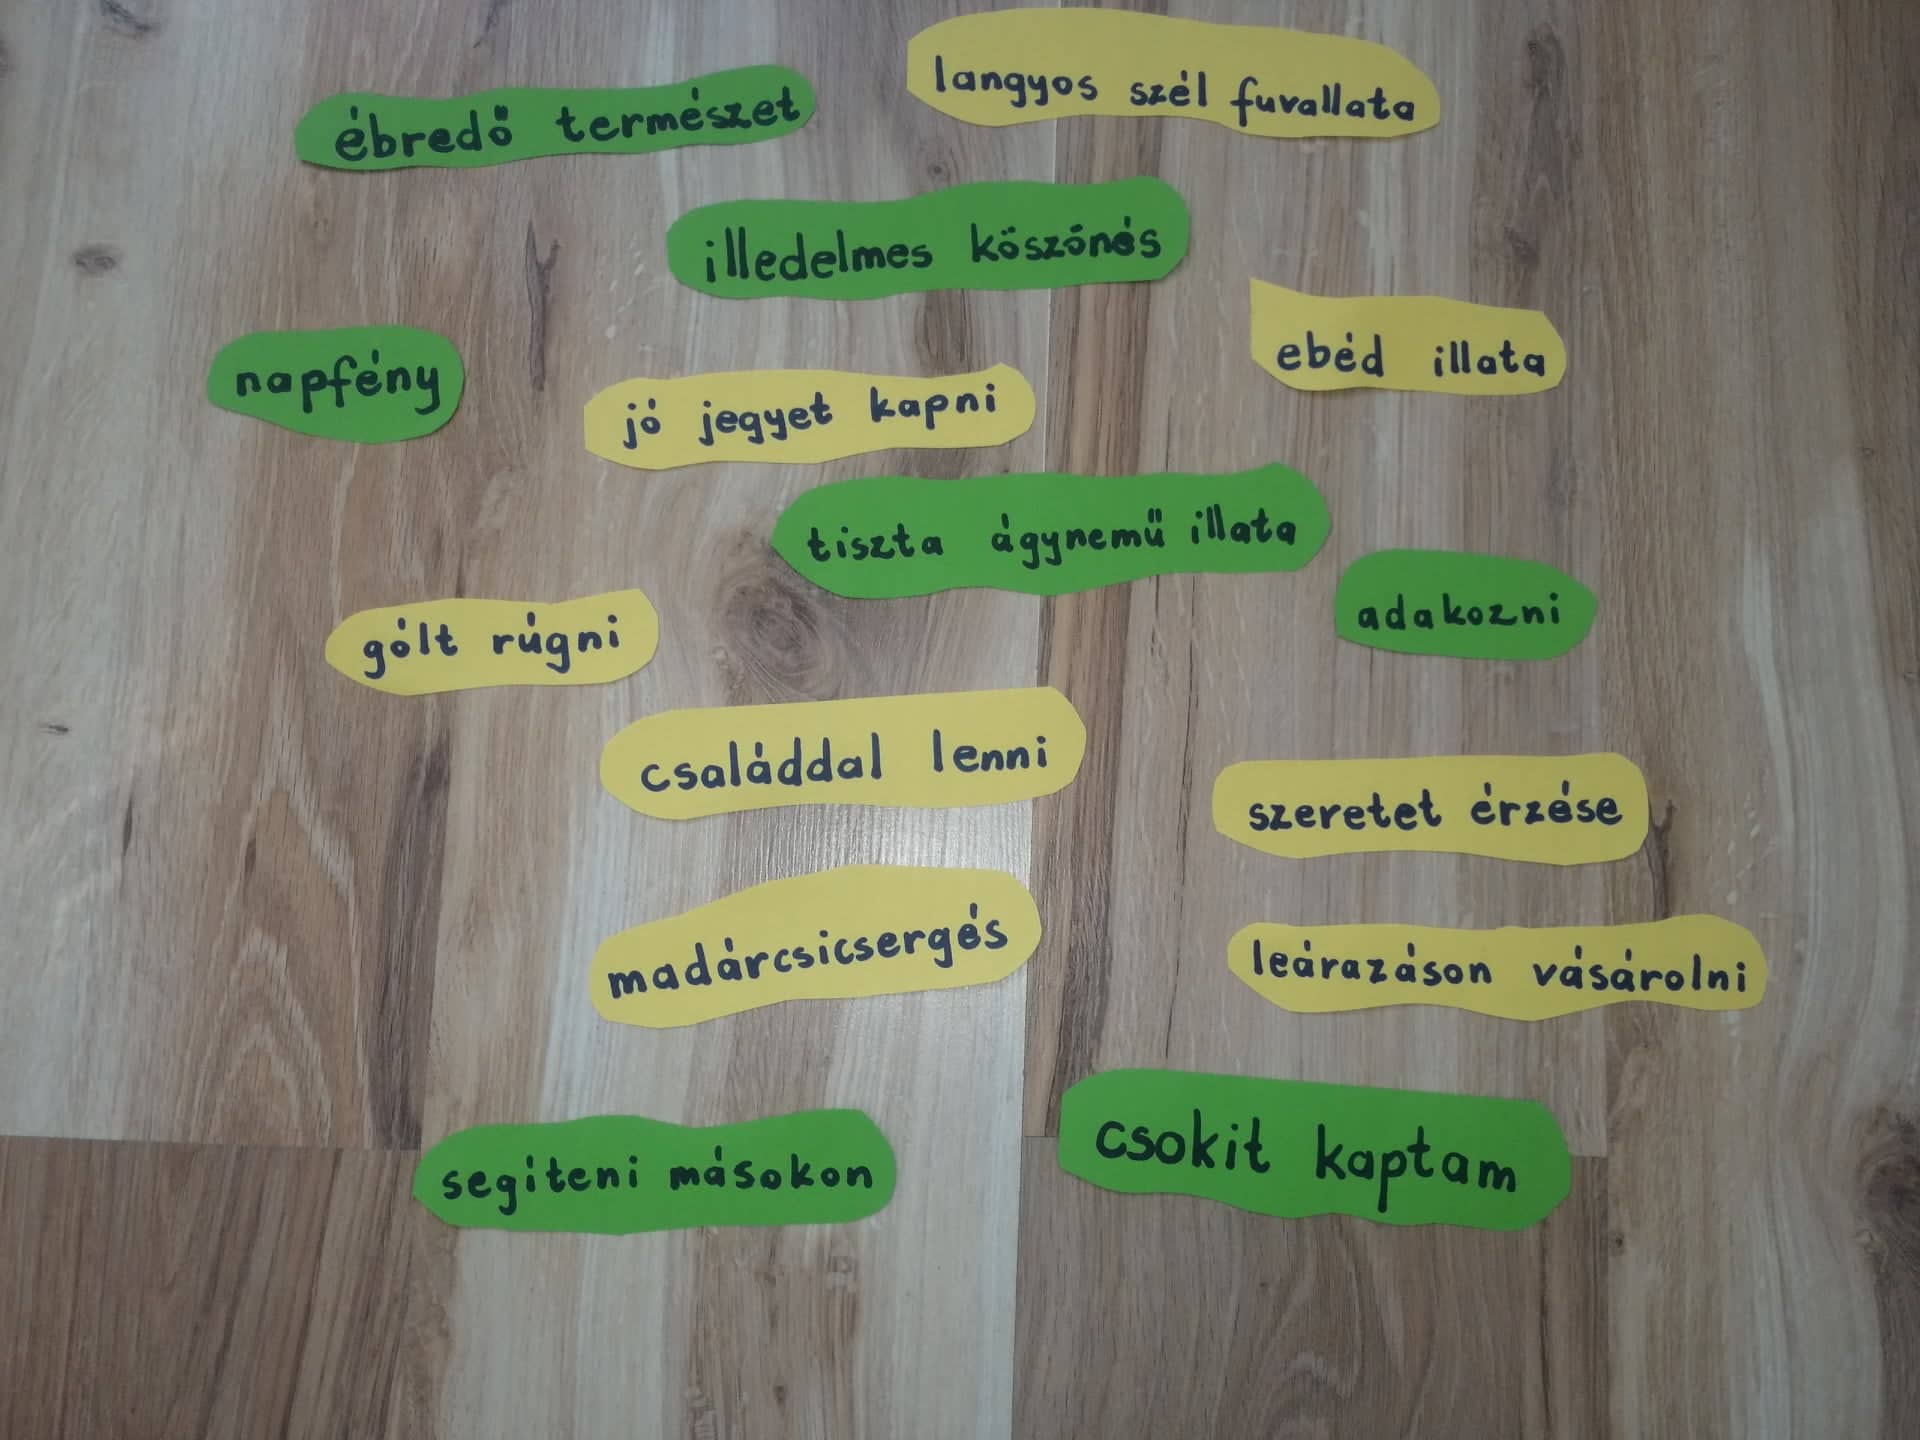 ébredő természet
langyos szél fuvallata
illedelmes köszönés
napfény
jó jegyet kapni
ebéd illata
tiszta ágynemű illata
adakozni
gólt rúgni
családdal lenni
szeretet érzése
madárcsicsergés
leárazáson vásárolni
segíteni másokon
csokit kaptam